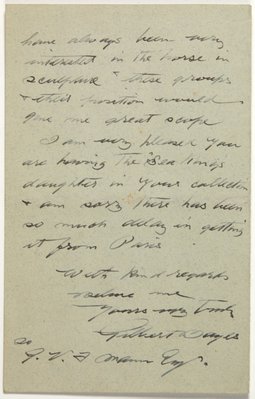 have always been very
interested in the horse in
sculpture & these groups
& their position would
give me great scope
I am very pleased you
are having the Sea Kings
daughter in your collection
& am sorry there has been
so much delay in getting
it from Paris
With kind regards
believe me
Yours very truly
Gilbert Bayes
to
G. V. F. Mann Esq.